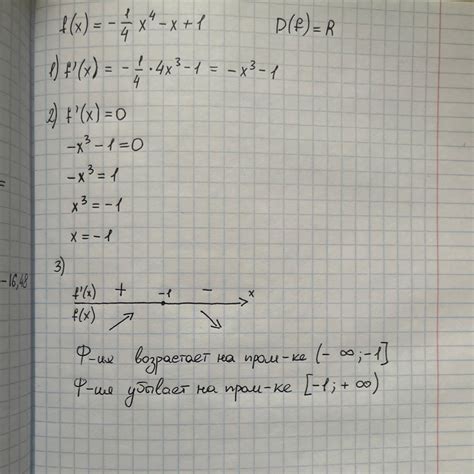 f(x) = -1/4 x⁴ - x + 1 D(f) = R
1) f'(x) = -1/4 · 4x³ - 1 = -x³ - 1
2) f'(x) = 0
-x³ - 1 = 0
-x³ = 1
x³ = -1
x = -1
3)
-16,48
f'(x) + -1 - x
f(x)
Ф-ия возрастает на пром-ке (- ∞; -1]
Ф-ия убывает на пром-ке [-1; + ∞)